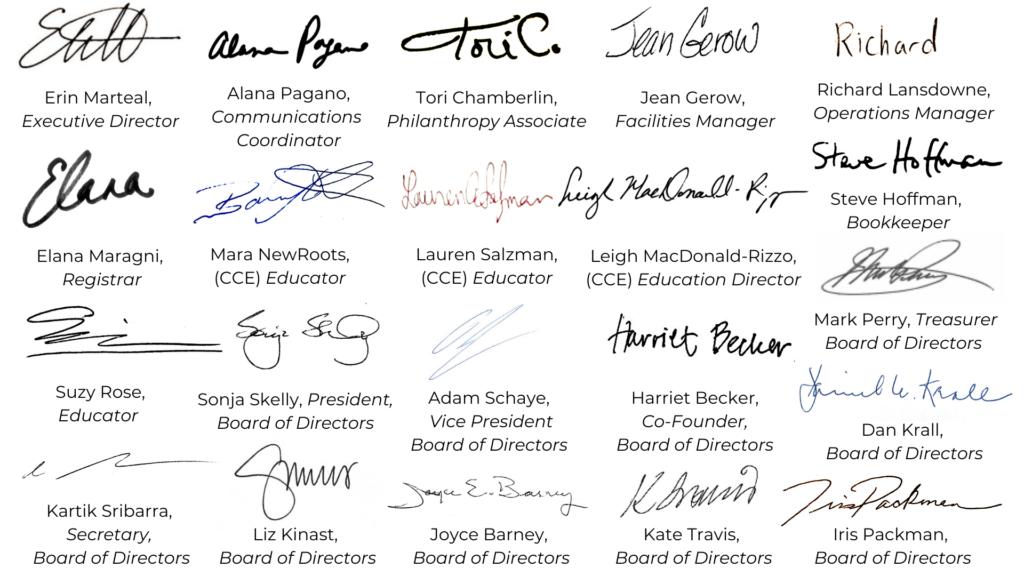 Alana Pagano
Tori C.
Jean Gerow
Richard
Erin Marteal,
Executive Director
Alana Pagano,
Communications
Coordinator
Tori Chamberlin,
Philanthropy Associate
Jean Gerow,
Facilities Manager
Richard Lansdowne,
Operations Manager
Elana
Lauren Salzman
Leigh MacDonald-Rizzo
Steve Hoffman
Elana Maragni,
Registrar
Mara NewRoots,
(CCE) Educator
Lauren Salzman,
(CCE) Educator
Leigh MacDonald-Rizzo,
(CCE) Education Director
Steve Hoffman,
Bookkeeper
Harriet Becker
Mark Perry, Treasurer
Board of Directors
Suzy Rose,
Educator
Sonja Skelly, President,
Board of Directors
Adam Schaye,
Vice President
Board of Directors
Harriet Becker,
Co-Founder,
Board of Directors
Daniel W. Krall
Dan Krall,
Board of Directors
Joyce E. Barney
Iris Packman
Kartik Sribarra,
Secretary,
Board of Directors
Liz Kinast,
Board of Directors
Joyce Barney,
Board of Directors
Kate Travis,
Board of Directors
Iris Packman,
Board of Directors